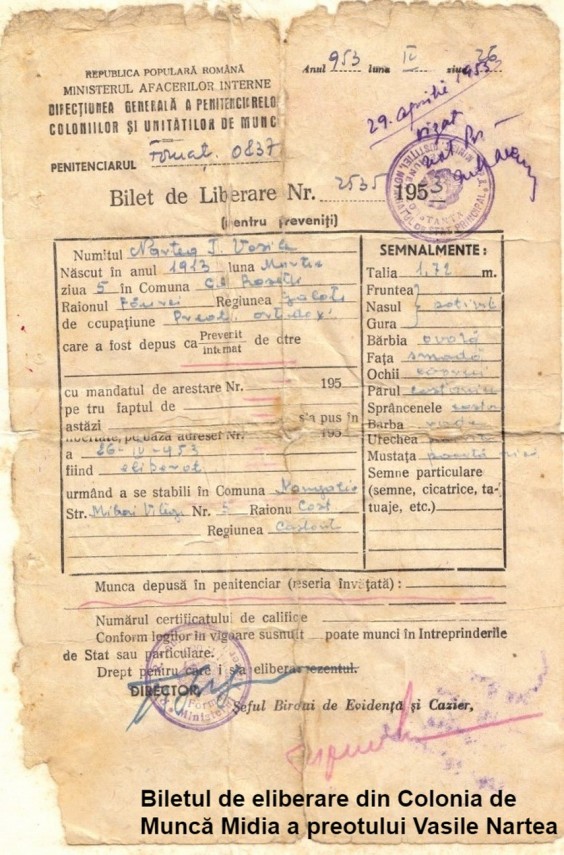 REPUBLICA POPULARĂ ROMÂNĂ
MINISTERUL AFACERILOR INTERNE
DIRECȚIUNEA GENERALĂ A PENITENCIARELO
COLONIILOR ȘI UNITĂȚILOR DE MUNC
PENITENCIARUL Format. 0837
Anul 953 luna IV ziua 26
29. aprilie 1953
vizat
Bilet de Liberare Nr. 2535 1953
(pentru preveniți)
Numitul Nartea I. Vasile
Născut în anul 1913 luna Martie
ziua 5 în Comuna C.A. Rosetti
Raionul Făurei Regiunea Galați
de ocupațiune Preot ortodox
care a fost depus ca Prevenit de către
internat
cu mandatul de arestare Nr. 195
pe tru faptul de
astăzi s'a pus în
libertate, pe baza adresei Nr. 195
a 26-IV-953
fiind eliberat
urmând a se stabili în Comuna Mangalia
Str. Mihai Viteaz Nr. 5 Raionu Const
Regiunea Constanța
SEMNALMENTE:
Talia 1,72 m.
Fruntea
Nasul potrivit
Gura
Bărbia ovală
Fața smeadă
Ochii căprui
Părul castaniu
Sprâncenele casta
Barba rade
Urechea
Mustața poartă mică
Semne particulare
(semne, cicatrice, ta-
tuaje, etc.)
Munca depusă în penitenciar (meseria învățată) :
Numărul certificatului de califice
Conform legilor în vigoare susnuit poate munci în Intreprinderile
de Stat sau particulare.
Drept pentru care i s'a eliberat prezentul.
DIRECTOR,
Șeful Biroui de Evidență și Cazier,
Biletul de eliberare din Colonia de
Muncă Midia a preotului Vasile Nartea